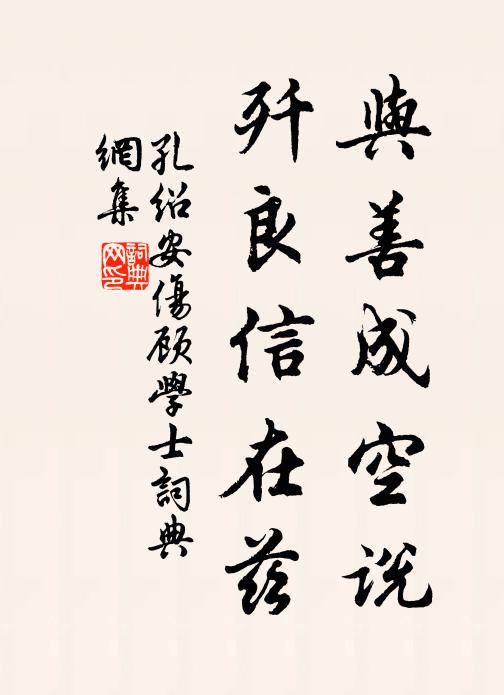 與善成空說
歼良信在茲
孔紹安傷顾學士詞典
網集
詞典
网印